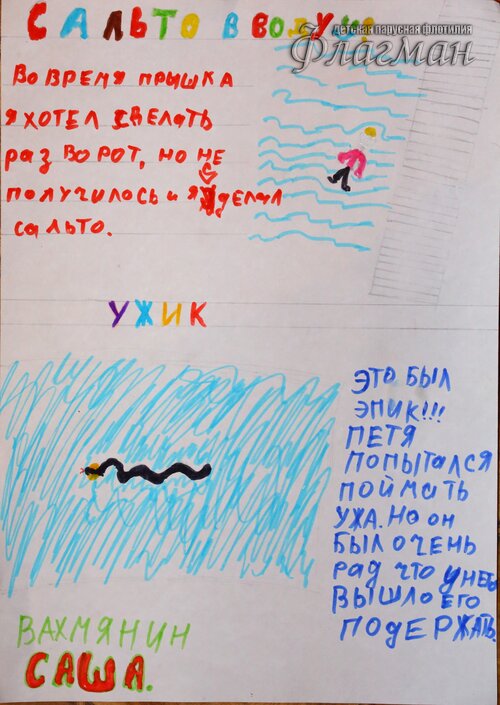 САЛЬТО В
детская парусная флотилия
Флагман
ВО ВРЕМЯ ПРЫШКА
Я ХОТЕЛ СДЕЛАТЬ
РАЗ ВОРОТ, НО НЕ
ПОЛУЧИЛОСЬ И Я СДЕЛАЛ
САЛЬТО.
УЖИК
ЭТО БЫЛ
ЭПИК!!!
ПЕТЯ
ПОПЫТАЛСЯ
ПОЙМАТЬ
УЖА. НО ОН
БЫЛ ОЧЕНЬ
РАД ЧТО У НЕГО
ВЫШЛО ЕГО
ПОДЕРЖАТЬ.
ВАХМЯНИН
САША.